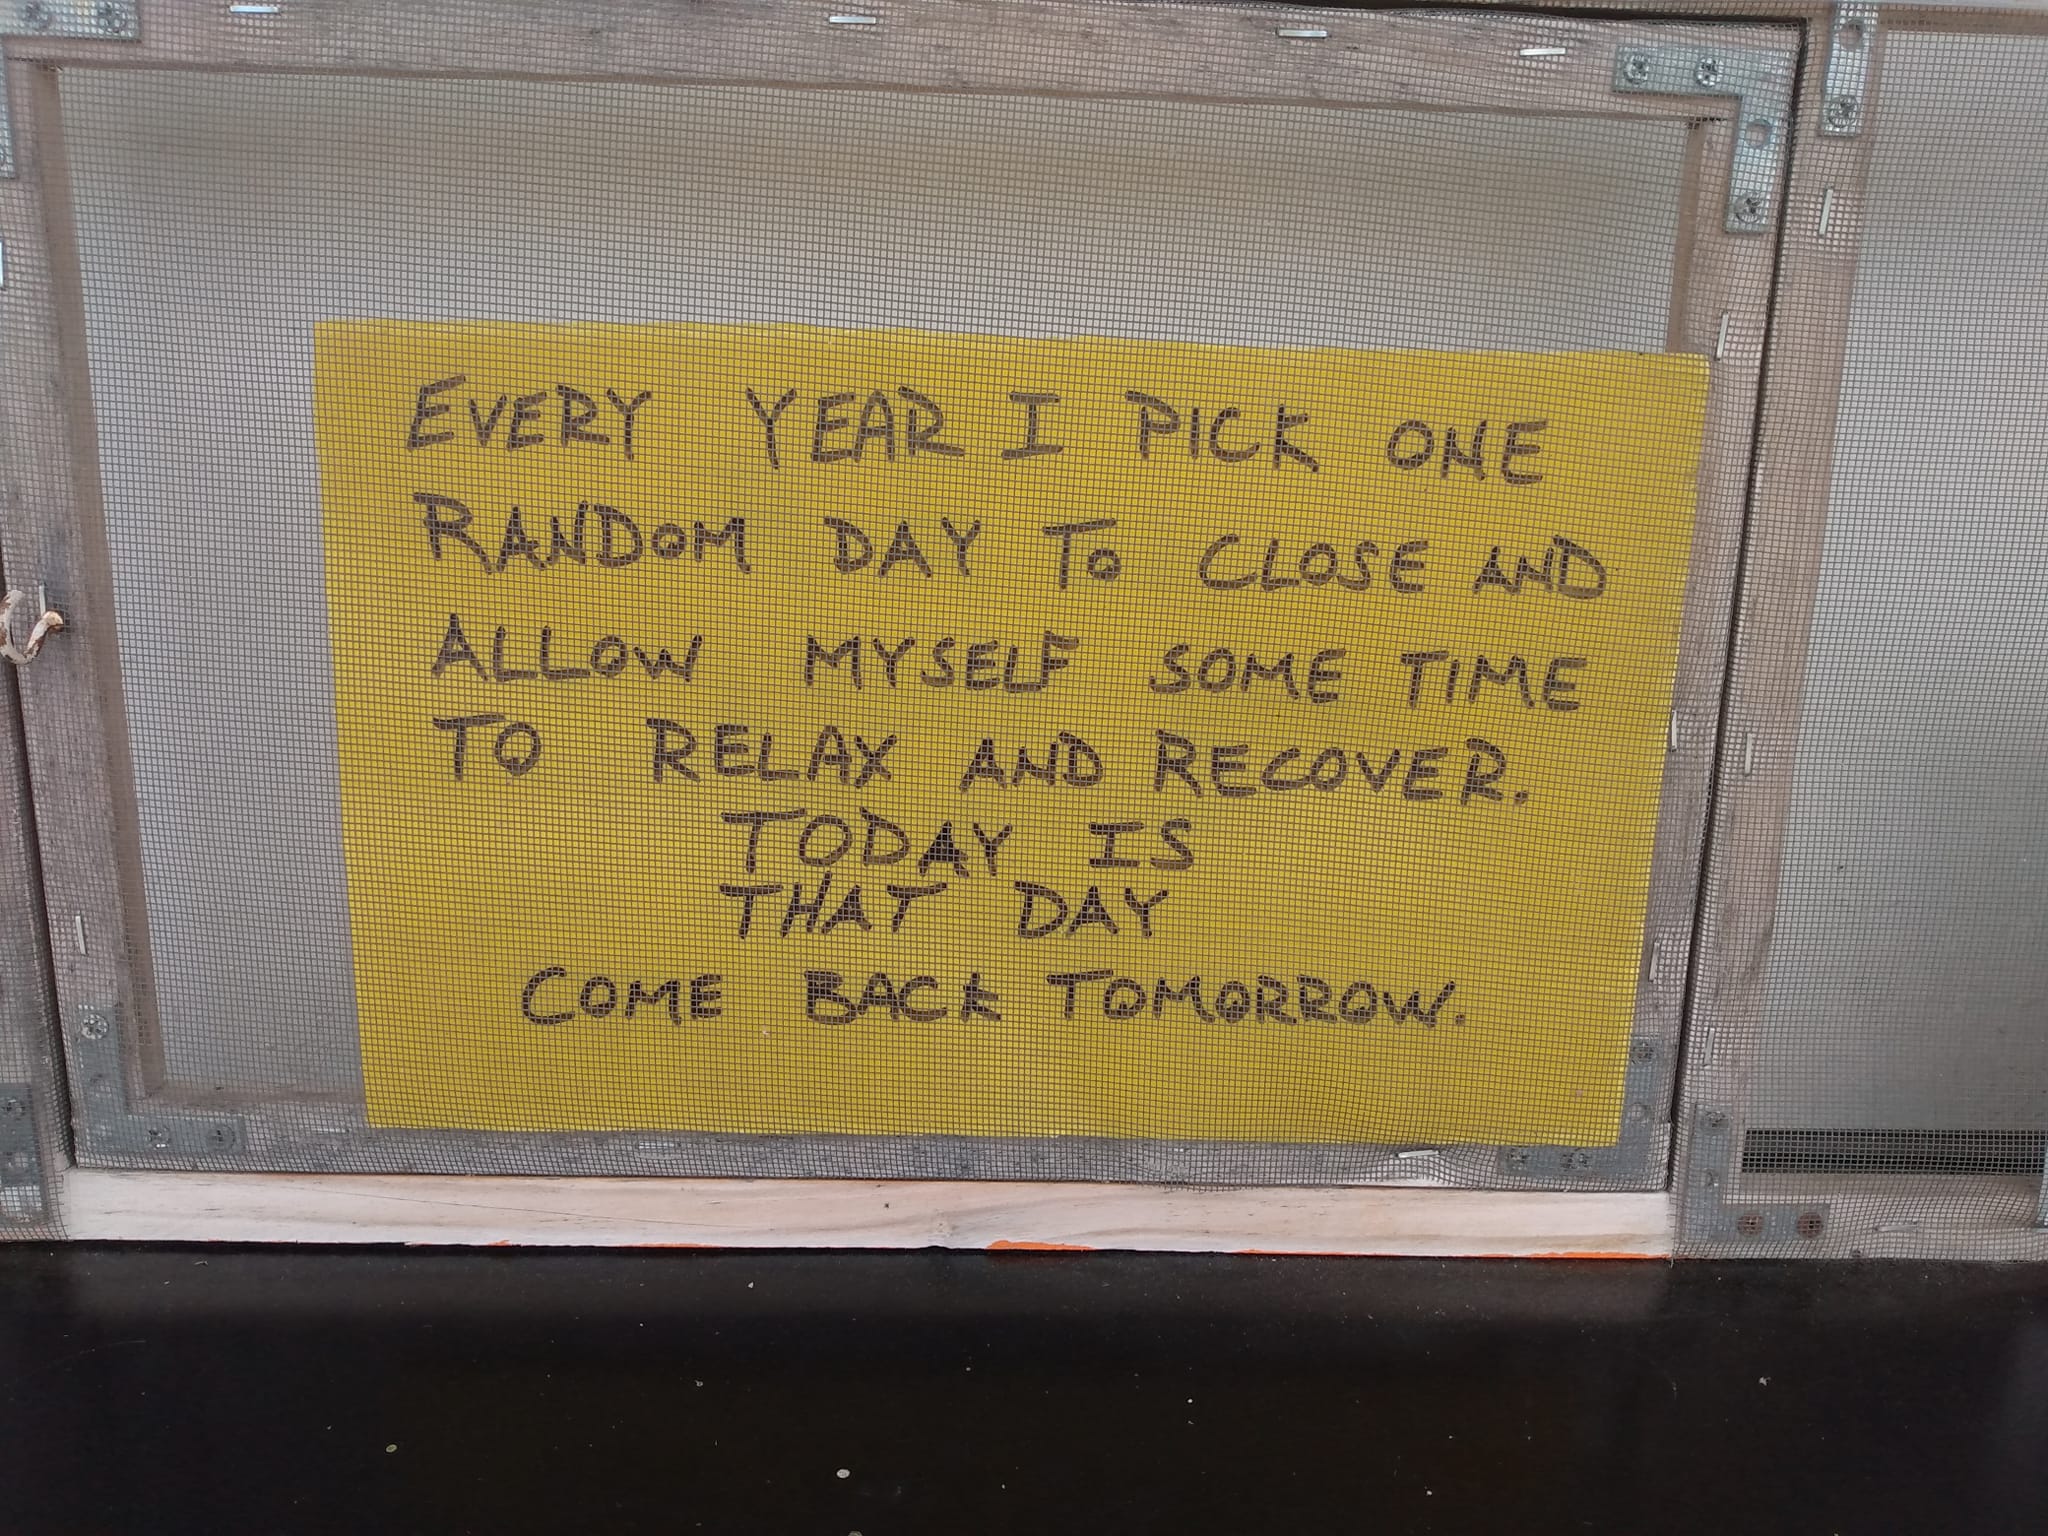 EVERY YEAR I PICK ONE
RANDOM DAY TO CLOSE AND
ALLOW MYSELF SOME TIME
TO RELAX AND RECOVER.
TODAY IS
THAT DAY
COME BACK TOMORROW.